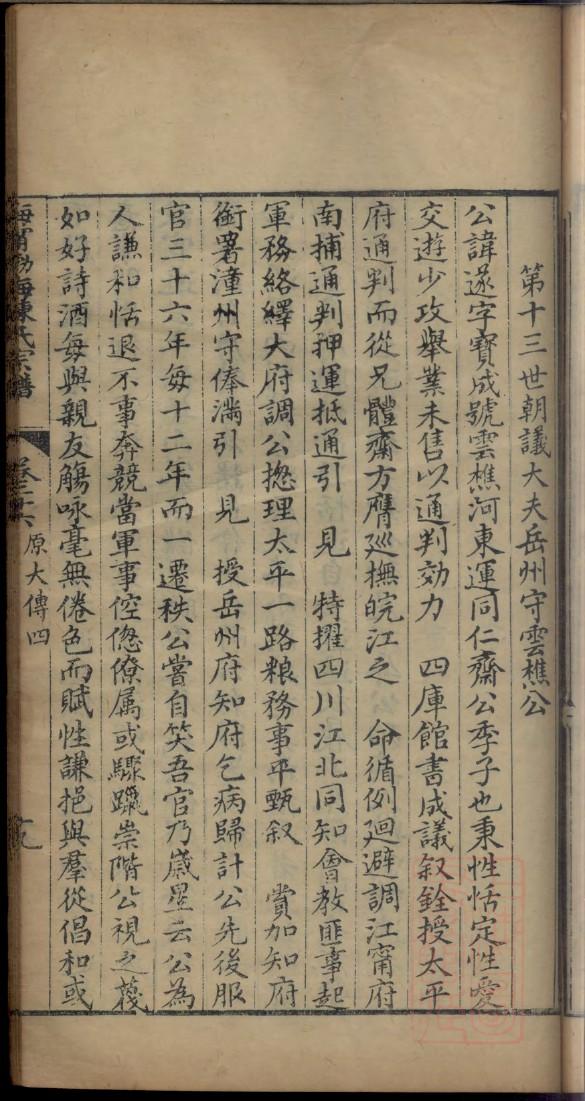 第十三世朝議大夫岳州守雲樵公
公諱遂字寶成號雲樵河東運同仁齋公季子也秉性恬定性愛
交遊少攻舉業未售以通判効力　四庫館書成議叙銓授太平
府通判而從兄體齋方膺廵撫皖江之　命循例廻避調江甯府
南捕通判押運抵通引　見　特擢四川江北同知會教匪事起
軍務絡繹大府調公揔理太平一路粮務事平甄叙　賞加知府
銜署潼州守俸滿引　見　授岳州府知府乞病歸計公先後服
官三十六年每十二年而一遷秩公嘗自笑吾官乃歲星云公為
人謙和恬退不事奔競當軍事倥偬僚属或驟躐崇階公視之蔑
如好詩酒每與親友觴咏毫無倦色而賦性謙挹與羣從倡和或
海甯渤海陳氏宗譜
卷二六
原大傳四